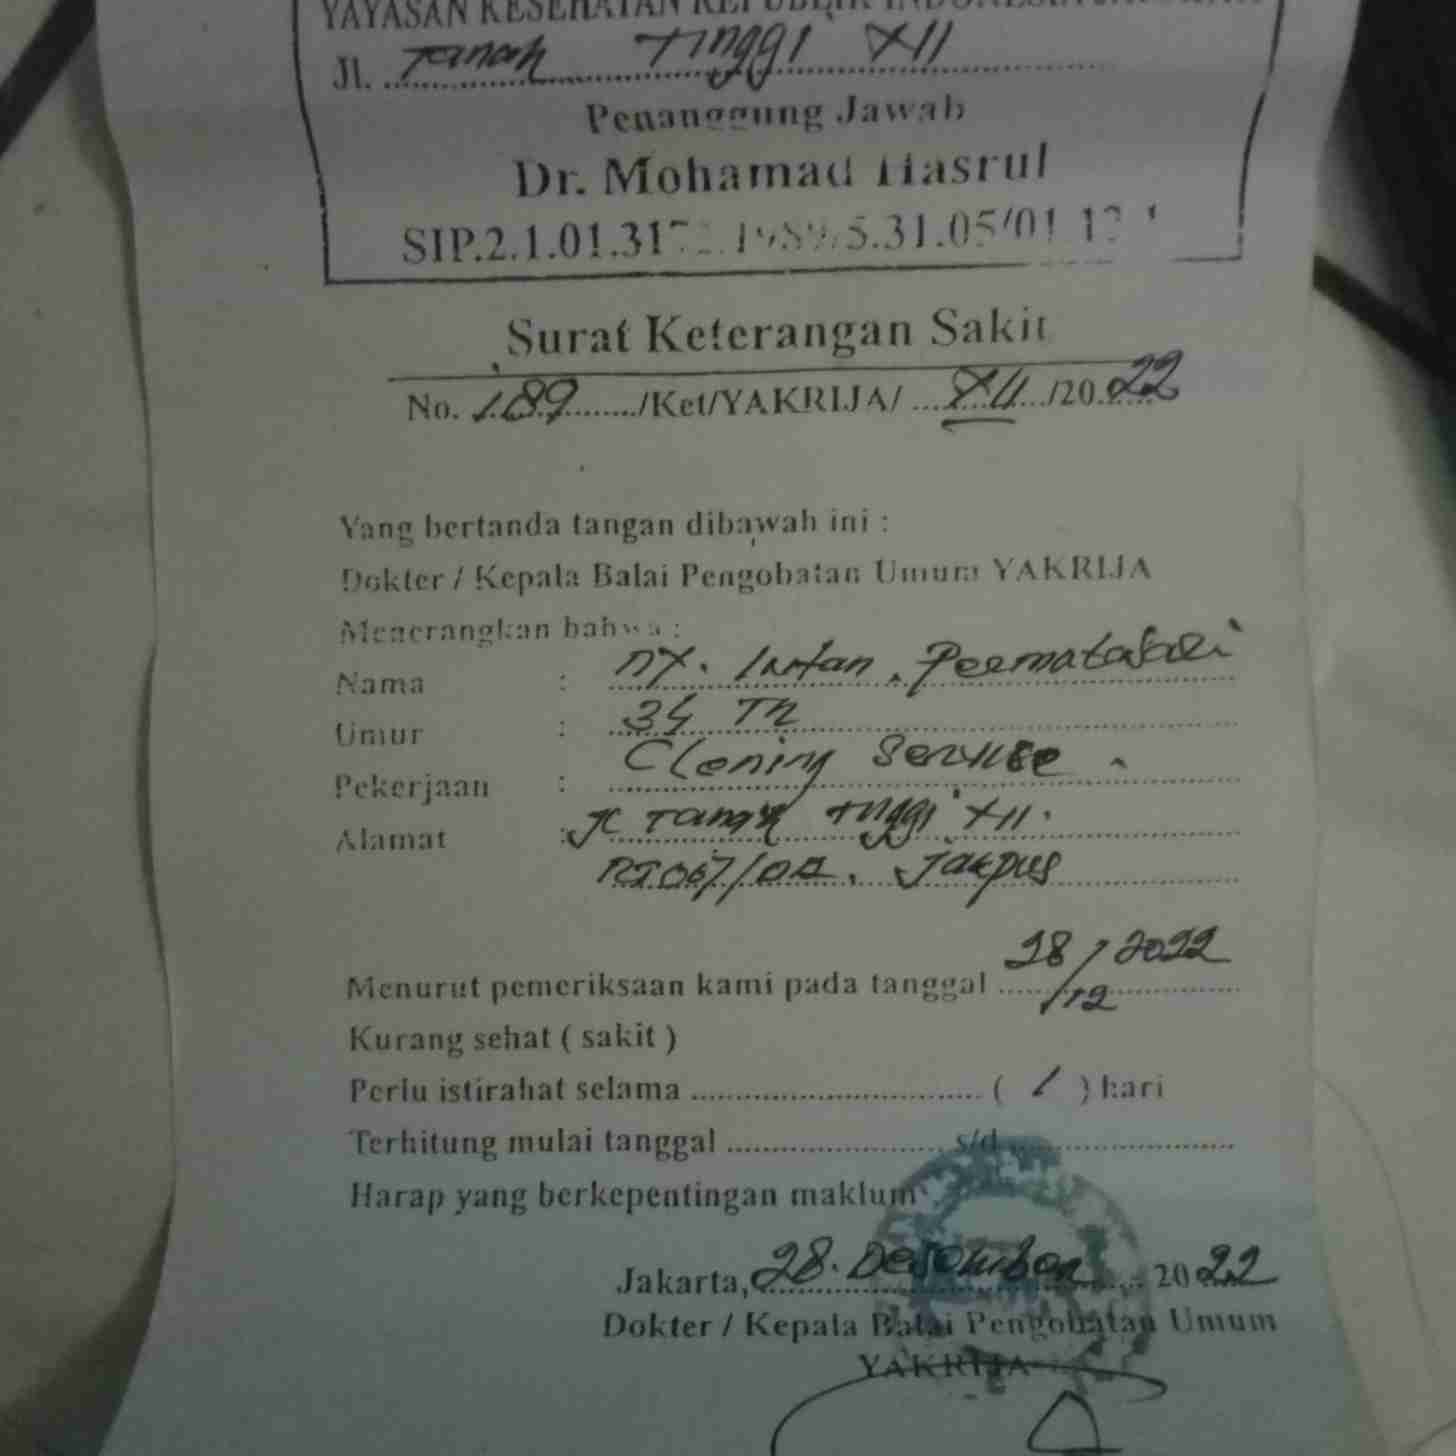 YAYASAN KESEHATAN REPUBLIK
Jl. Tanah Tinggi XII
Penanggung Jawab
Dr. Mohamad Hasrul
Surat Keterangan Sakit
No. 189 /Ket/YAKRIJA/ XII /20 22
Yang bertanda tangan dibawah ini :
Dokter / Kepala Balai Pengobatan Umum YAKRIJA
Menerangkan bahwa :
Nama : Intan Permatasari
Umur : 34 Th
Pekerjaan : Clening Servise
Alamat : Jl Tanah Tinggi XII.
Jakpus
Menurut pemeriksaan kami pada tanggal 28/12 2022
Kurang sehat ( sakit )
Perlu istirahat selama .......... ( 1 ) hari
Terhitung mulai tanggal .......... s/d ..........
Harap yang berkepentingan maklum
Jakarta, 28. Desember 2022
Dokter / Kepala Balai Pengobatan Umum
YAKRIJA